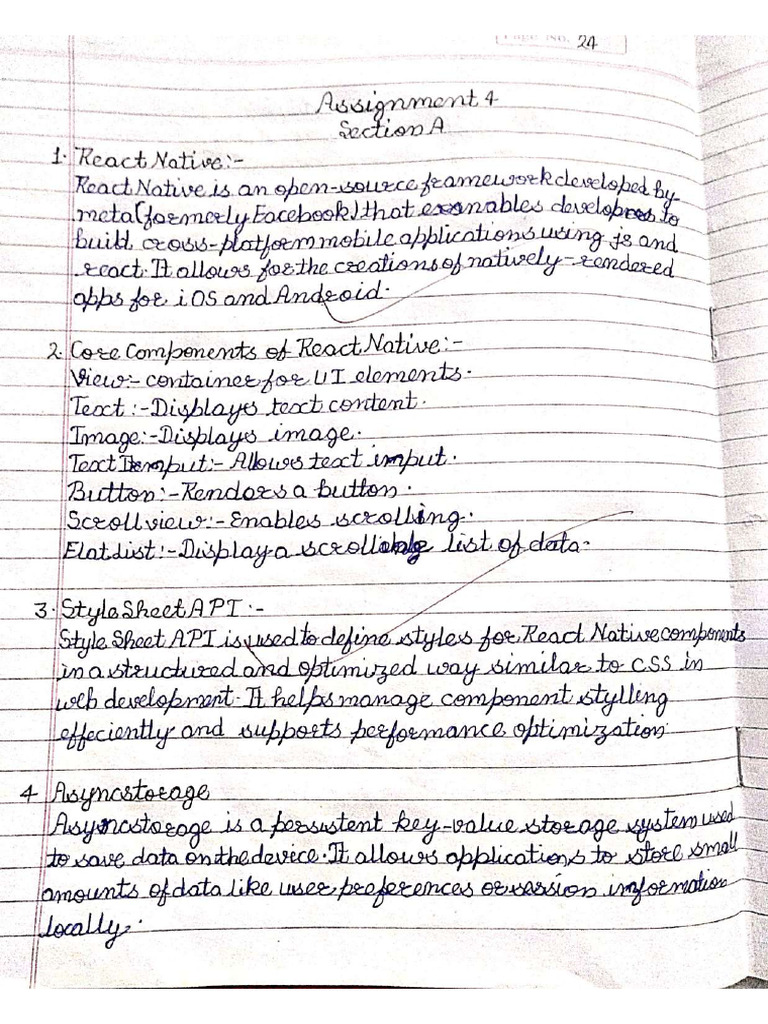 Page No. 24
Assignment 4
Section A
1. React Native:-
React Native is an open-source framework developed by
meta (formerly Facebook) that enables developres to
build cross-platform mobile applications using js and
react. It allows for the creations of natively-rendered
apps for iOS and Android.
2. Core Components of React Native:-
View:- container for UI elements.
Text :- Displays text content.
Image:- Displays image.
Text Input:- Allows text input.
Button:- Rendors a button.
Scroll view:- Enables scrolling.
Flat list:- Display a scrollable list of data.
3. Style Sheet API :-
Style Sheet API is used to define styles for React Native components
in a structured and optimized way similar to CSS in
web development. It helps manage component stylling
effeciently and supports performance optimization.
4 Asyncstorage
Asyncstorage is a persistent key-value storage system used
to save data on the device. It allows applications to store small
amounts of data like user preferences or session information
locally.